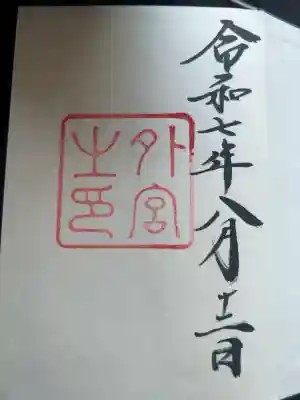 令和七年八月十二日
外宮
之印